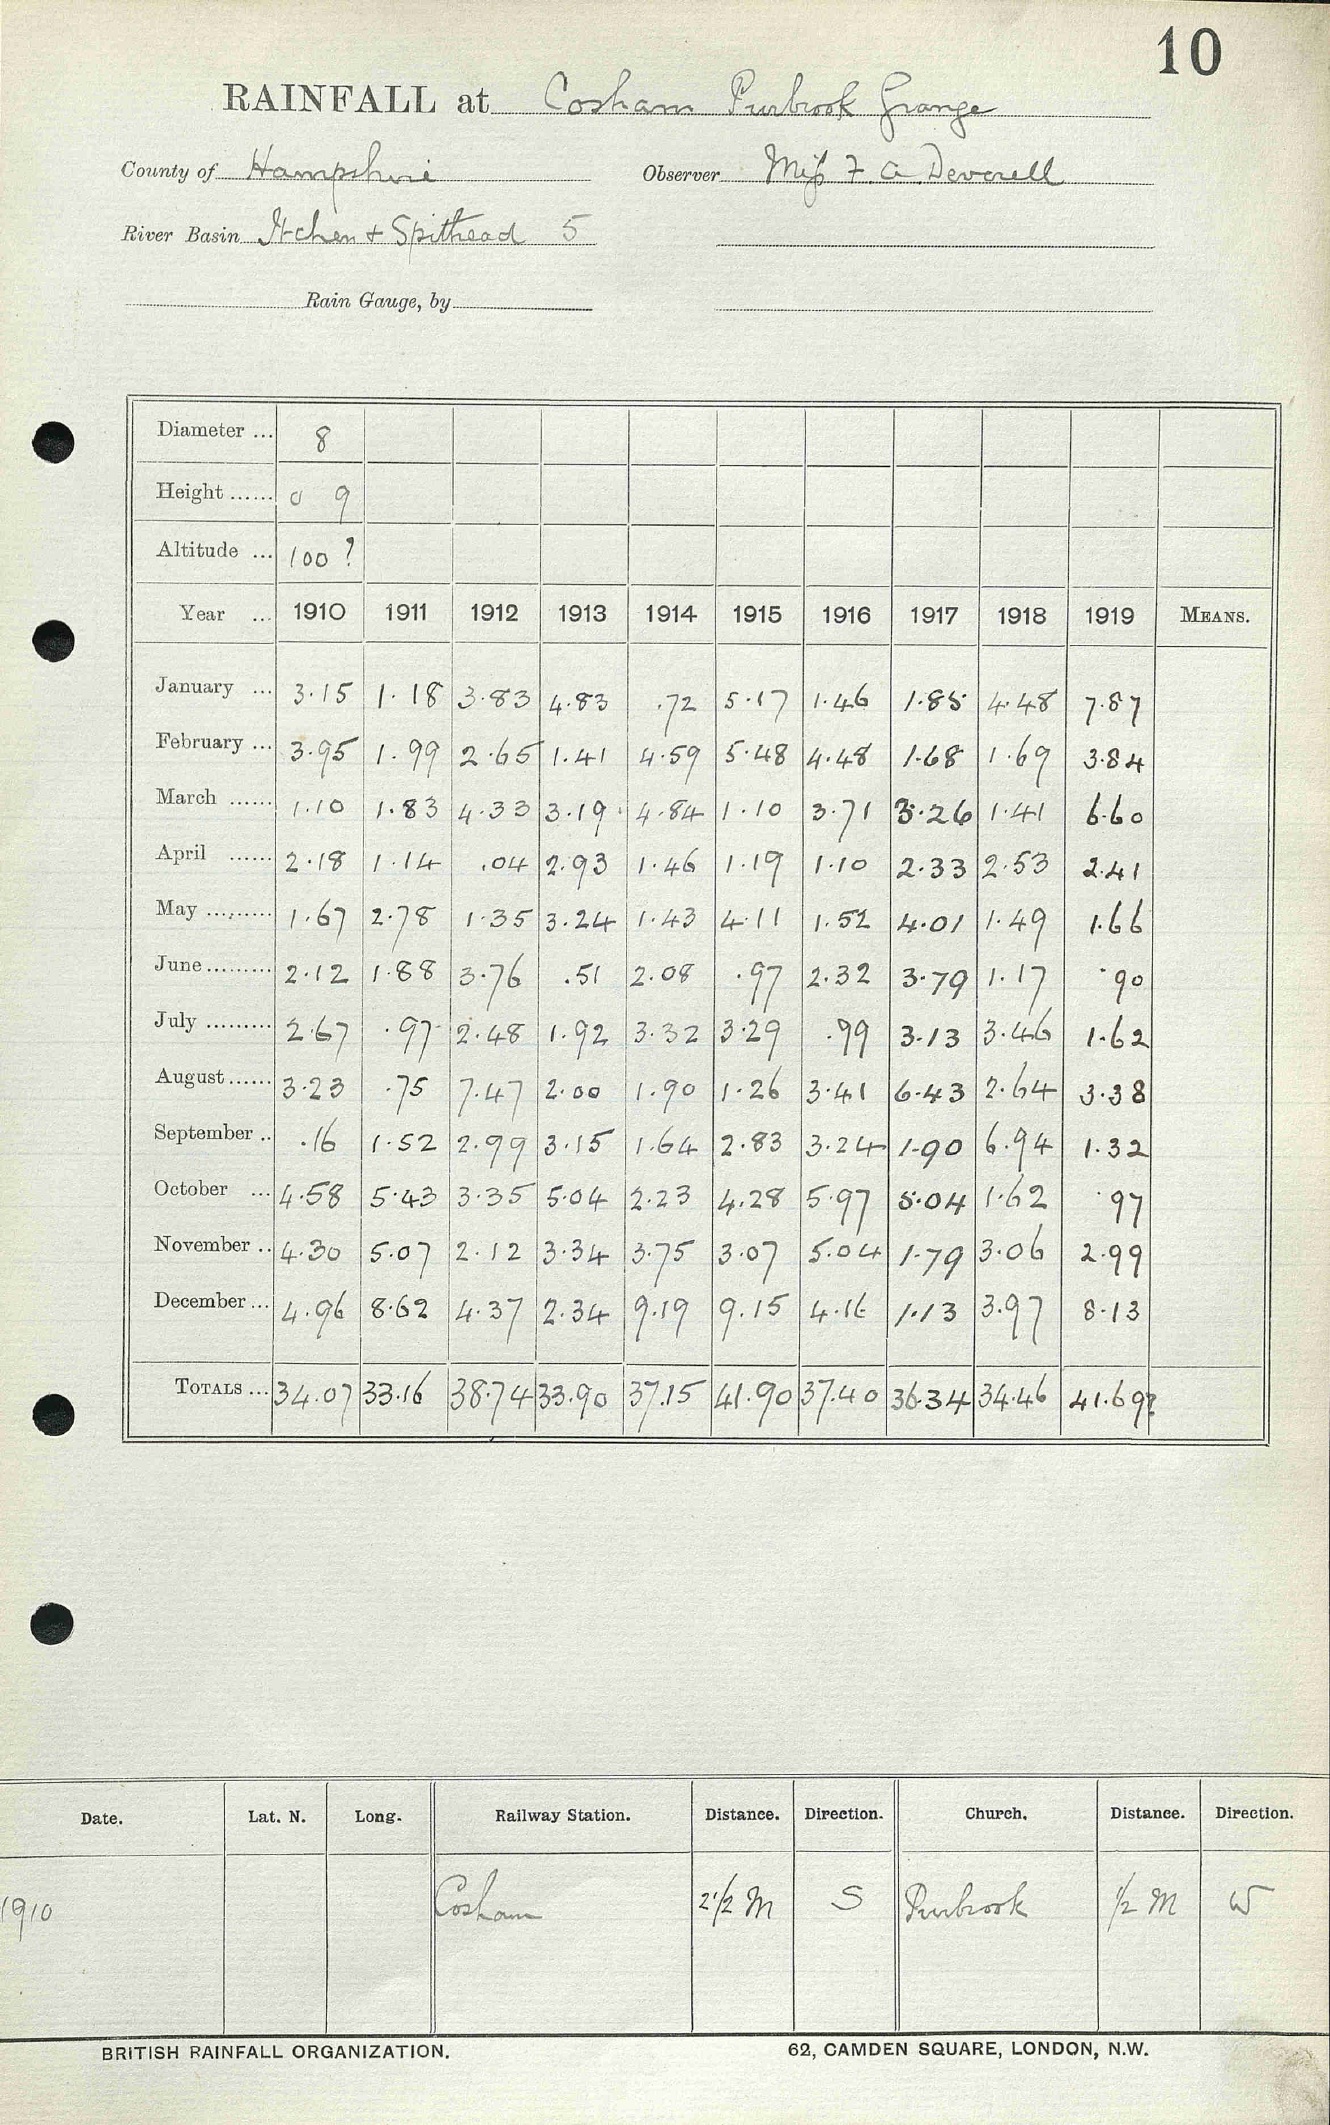 10
RAINFALL at Cosham Purbrook Grange
County of Hampshire Observer Miss F. A. Deverell
River Basin Itchen + Spithead 5
Rain Gauge, by
Diameter ... 8
Height ...... 0 9
Altitude ... 100 ?
Year ... 1910 1911 1912 1913 1914 1915 1916 1917 1918 1919 MEANS.
January ... 3.15 1.18 3.83 4.83 .72 5.17 1.46 1.85 4.48 7.87
February ... 3.95 1.99 2.65 1.41 4.59 5.48 4.48 1.68 1.69 3.84
March ...... 1.10 1.83 4.33 3.19 4.84 1.10 3.71 3.26 1.41 6.60
April ...... 2.18 1.14 .04 2.93 1.46 1.19 1.10 2.33 2.53 2.41
May ......... 1.67 2.78 1.35 3.24 1.43 4.11 1.52 4.01 1.49 1.66
June ......... 2.12 1.88 3.76 .51 2.08 .97 2.32 3.79 1.17 .90
July ......... 2.67 .97 2.48 1.92 3.32 3.29 .99 3.13 3.46 1.62
August ...... 3.23 .75 7.47 2.00 1.90 1.26 3.41 6.43 2.64 3.38
September .. .16 1.52 2.99 3.15 1.64 2.83 3.24 1.90 6.94 1.32
October ... 4.58 5.43 3.35 5.04 2.23 4.28 5.97 5.04 1.62 .97
November .. 4.30 5.07 2.12 3.34 3.75 3.07 5.04 1.79 3.06 2.99
December ... 4.96 8.62 4.37 2.34 9.19 9.15 4.16 1.13 3.97 8.13
TOTALS ... 34.07 33.16 38.74 33.90 37.15 41.90 37.40 36.34 34.46 41.69?
Date. Lat. N. Long. Railway Station. Distance. Direction. Church. Distance. Direction.
1910 Cosham 2 1/2 M S Purbrook 1/2 M W
BRITISH RAINFALL ORGANIZATION. 62, CAMDEN SQUARE, LONDON, N.W.